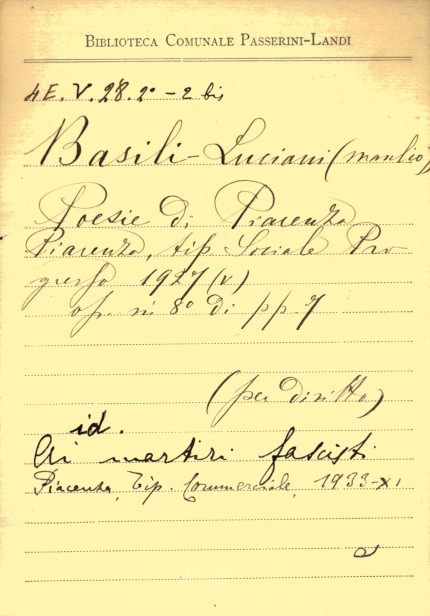 BIBLIOTECA COMUNALE PASSERINI-LANDI
4E. V. 28. 2° - 2 bis
Basili-Luciani (manlio),
Poesie di Piacenza
Piacenza, tip. Sociale Pro-
gresso 1927 (V)
op. in 8° di pp 7
(per diritto)
id.
Ai martiri fascisti
Piacenza, Tip. Commerciale, 1933-XI